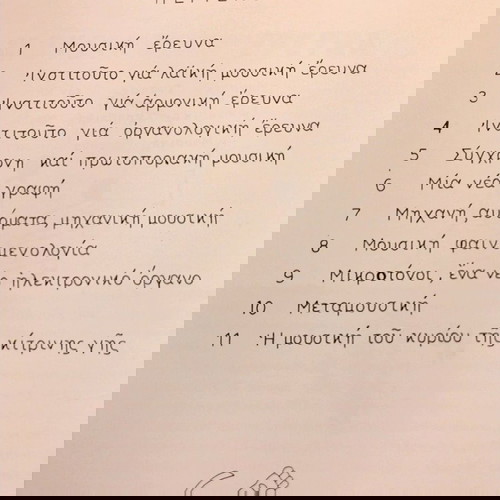 1 Μουσική ἔρευνα
2 Ἰνστιτοῦτο γιά λαϊκή μουσική ἔρευνα
3 Ἰνστιτοῦτο γιά ἁρμονική ἔρευνα
4 Ἰνστιτοῦτο γιά ὀργανολογική ἔρευνα
5 Σύγχρονη καί πρωτοποριακή μουσική
6 Μιά νέα γραφή
7 Μηχανή αὐτόματα μηχανική μουσική
8 Μουσική φαινομενολογία
9 Μικροτόνοι, ἕνα νέο ἠλεκτρονικό ὄργανο
10 Μεταμουσική
11 Ἡ μουσική τοῦ κυρίου τῆς κίτρινης γῆς